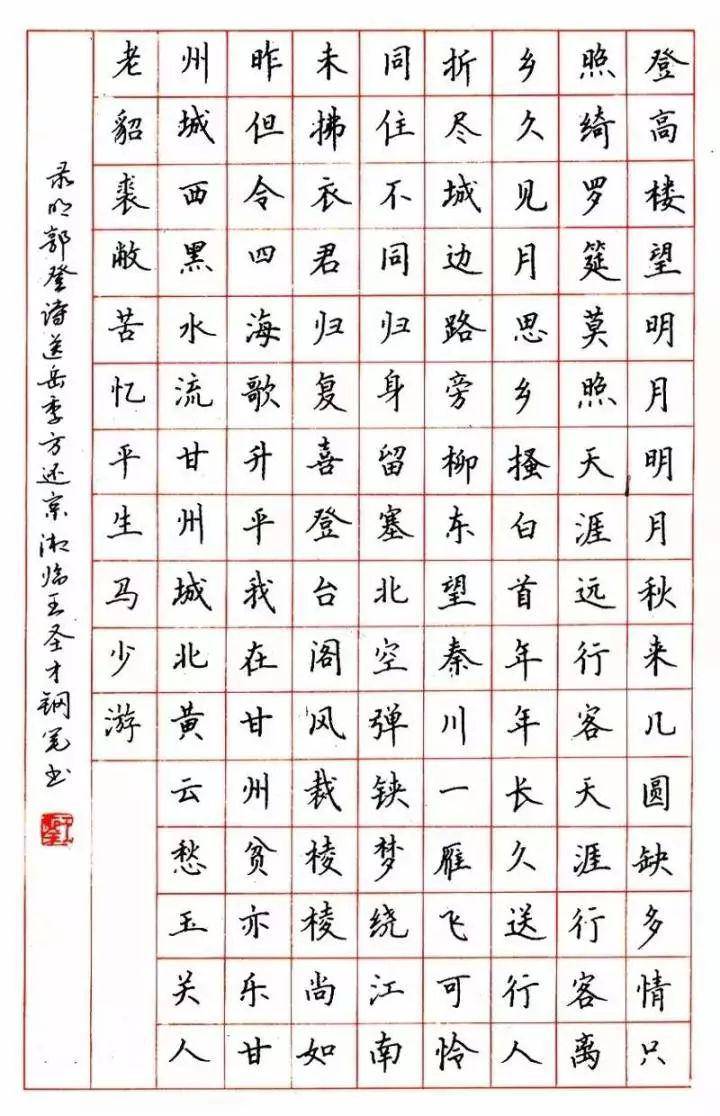 登高楼望明月明月秋来几圆缺多情只
照绮罗筵莫照天涯远行客天涯行客离
乡久见月思乡搔白首年年长久送行人
折尽城边路旁柳东望秦川一雁飞可怜
同住不同归身留塞北空弹铗梦绕江南
未拂衣君归复喜登台阁风裁棱棱尚如
昨但令四海歌升平我在甘州贫亦乐甘
州城西黑水流甘州城北黄云愁玉关人
老貂裘敝苦忆平生马少游
录明郭登诗送岳季方还京湘临王圣才钢笔书